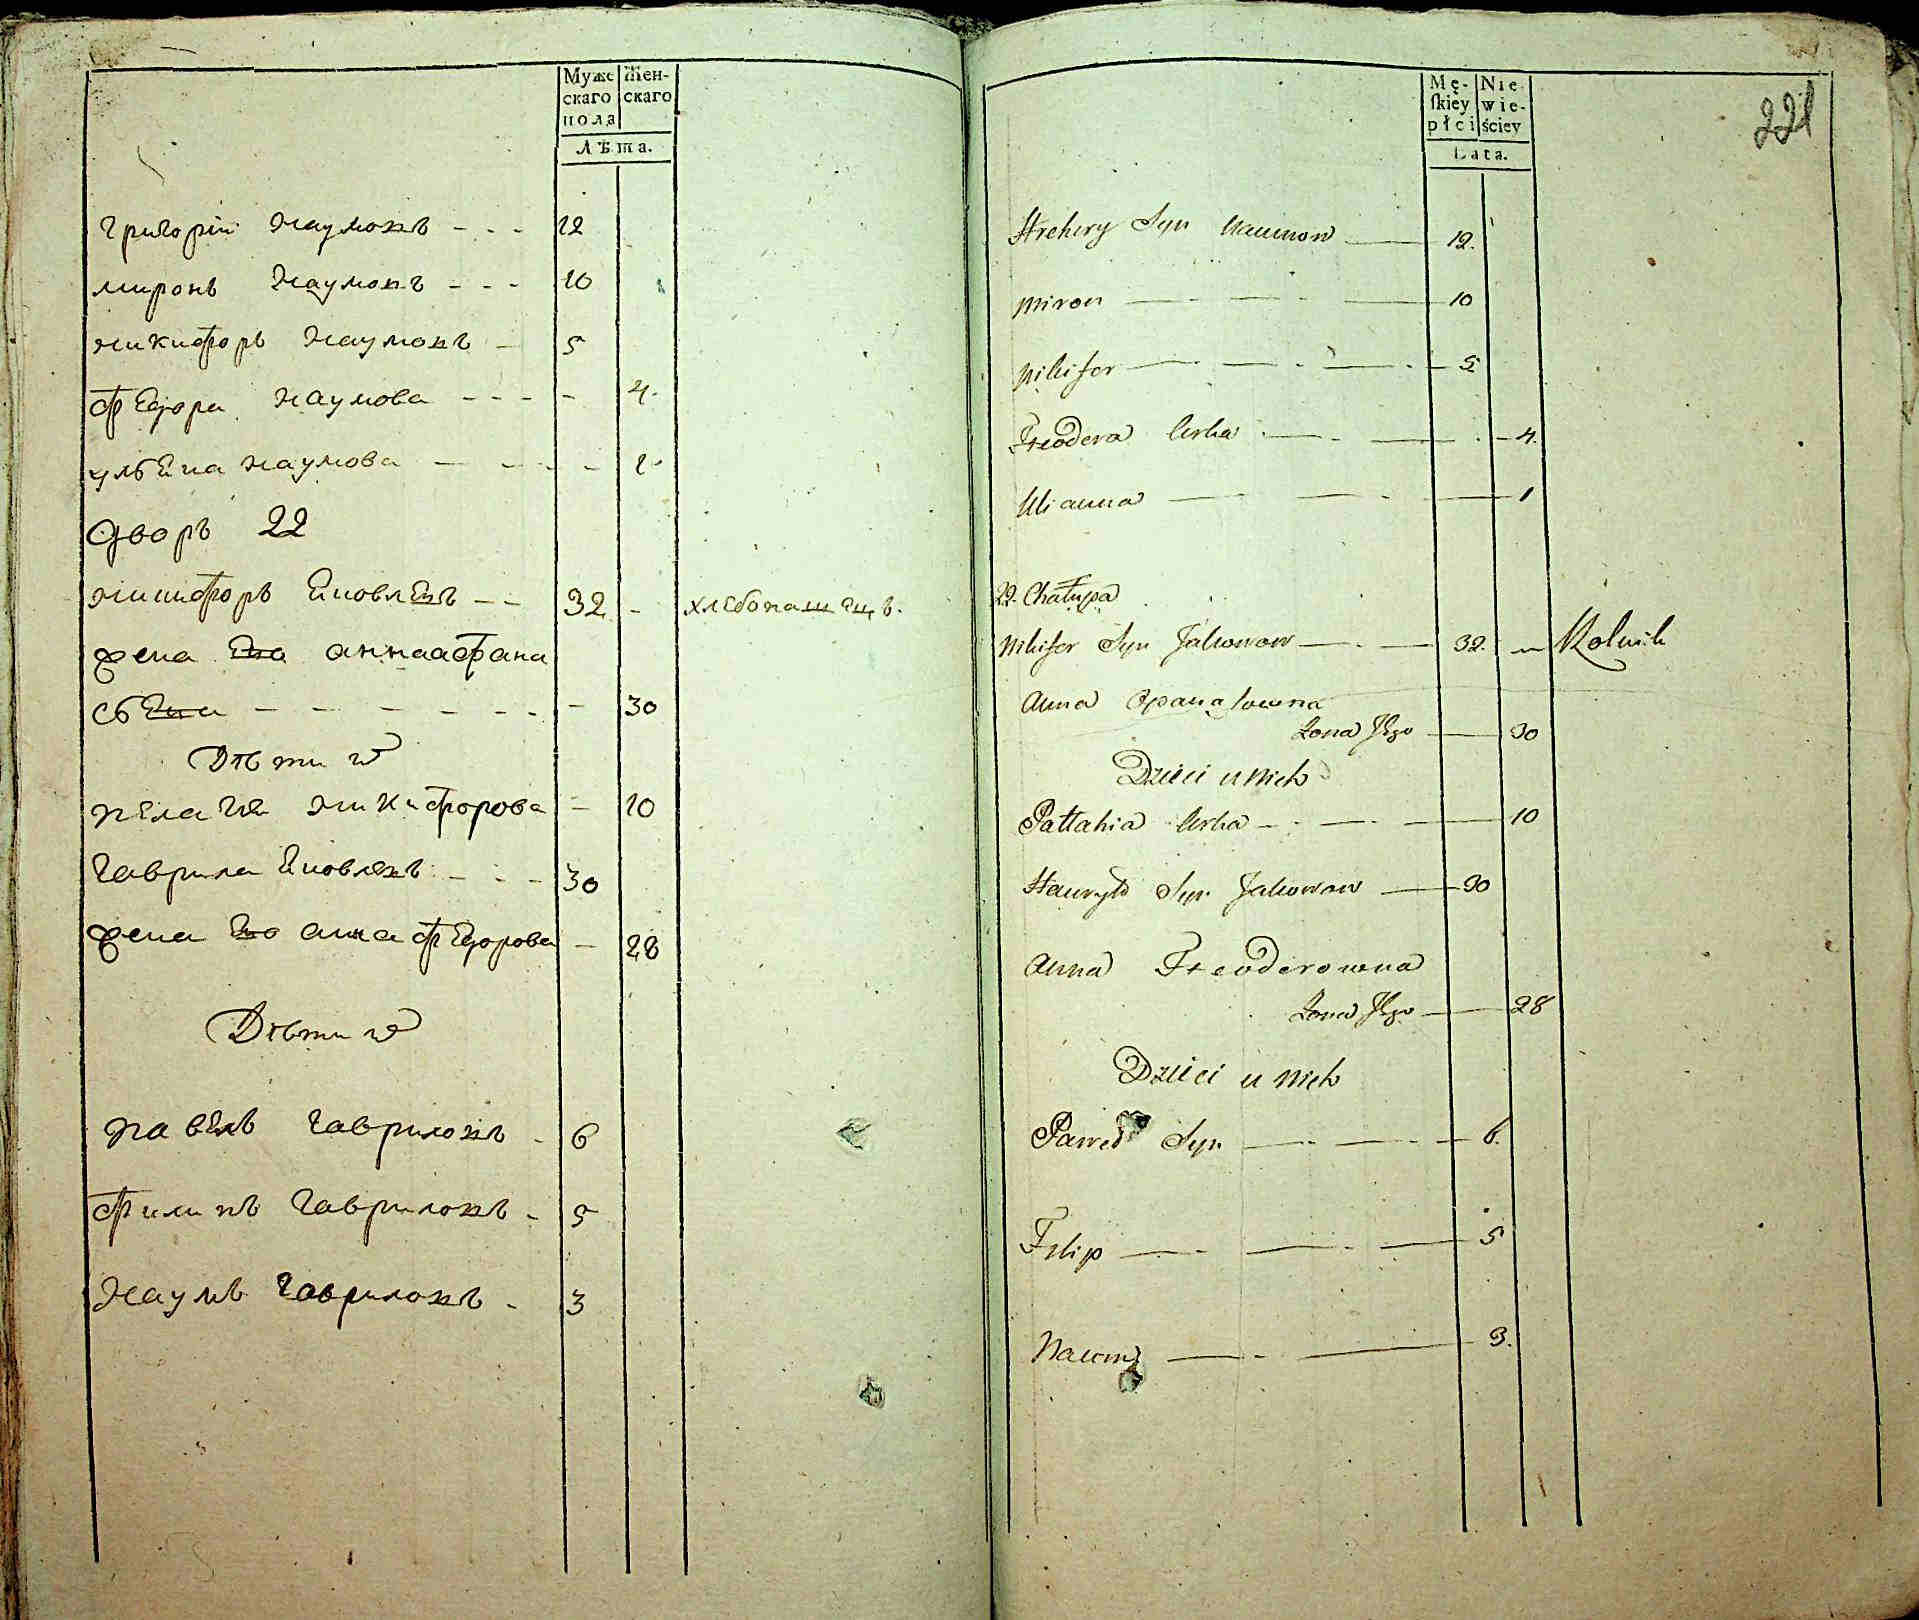 Муже
скаго
пола
Жен-
скаго
Лѣта.
Григорій Наумовъ - - - 12
Миронъ Наумовъ - - - 10
Никифоръ Наумовъ - 5
Федора Наумова - - - - 4.
Ульяна Наумова - - - - 1.
Дворъ 22
Никифоръ Яковлевъ - - 32 - хлебопашецъ.
Жена Его Анна Афана
сьева - - - - - - - 30
Дѣти их
Пелагия Никифорова - 10
Гаврила Яковлевъ - - - 30
Жена Его Анна Федорова - 28
Дѣти их
Павелъ Гавриловъ - 6
Филипъ Гавриловъ - 5
Наумъ Гавриловъ - 3
Mę-
ſkiey
płci
Nie-
wie-
ściey
Lata.
221
Hrehory Syn Naumow 12.
Miron 10
Nikifor 5
Fteodora Curka 4.
Ulianna 1
22. Chałupa
Nikifor Syn Jakowow 32. Rolnik
Anna Opanasowna
Żona Jego 30
Dzieci u nich
Pałłahia Curka 10
Hawryło Syn Jakowow 30
Anna Fteodorowna
Żona Jego 28
Dzieci u nich
Paweł Syn 6.
Filip 5
Naum 3.